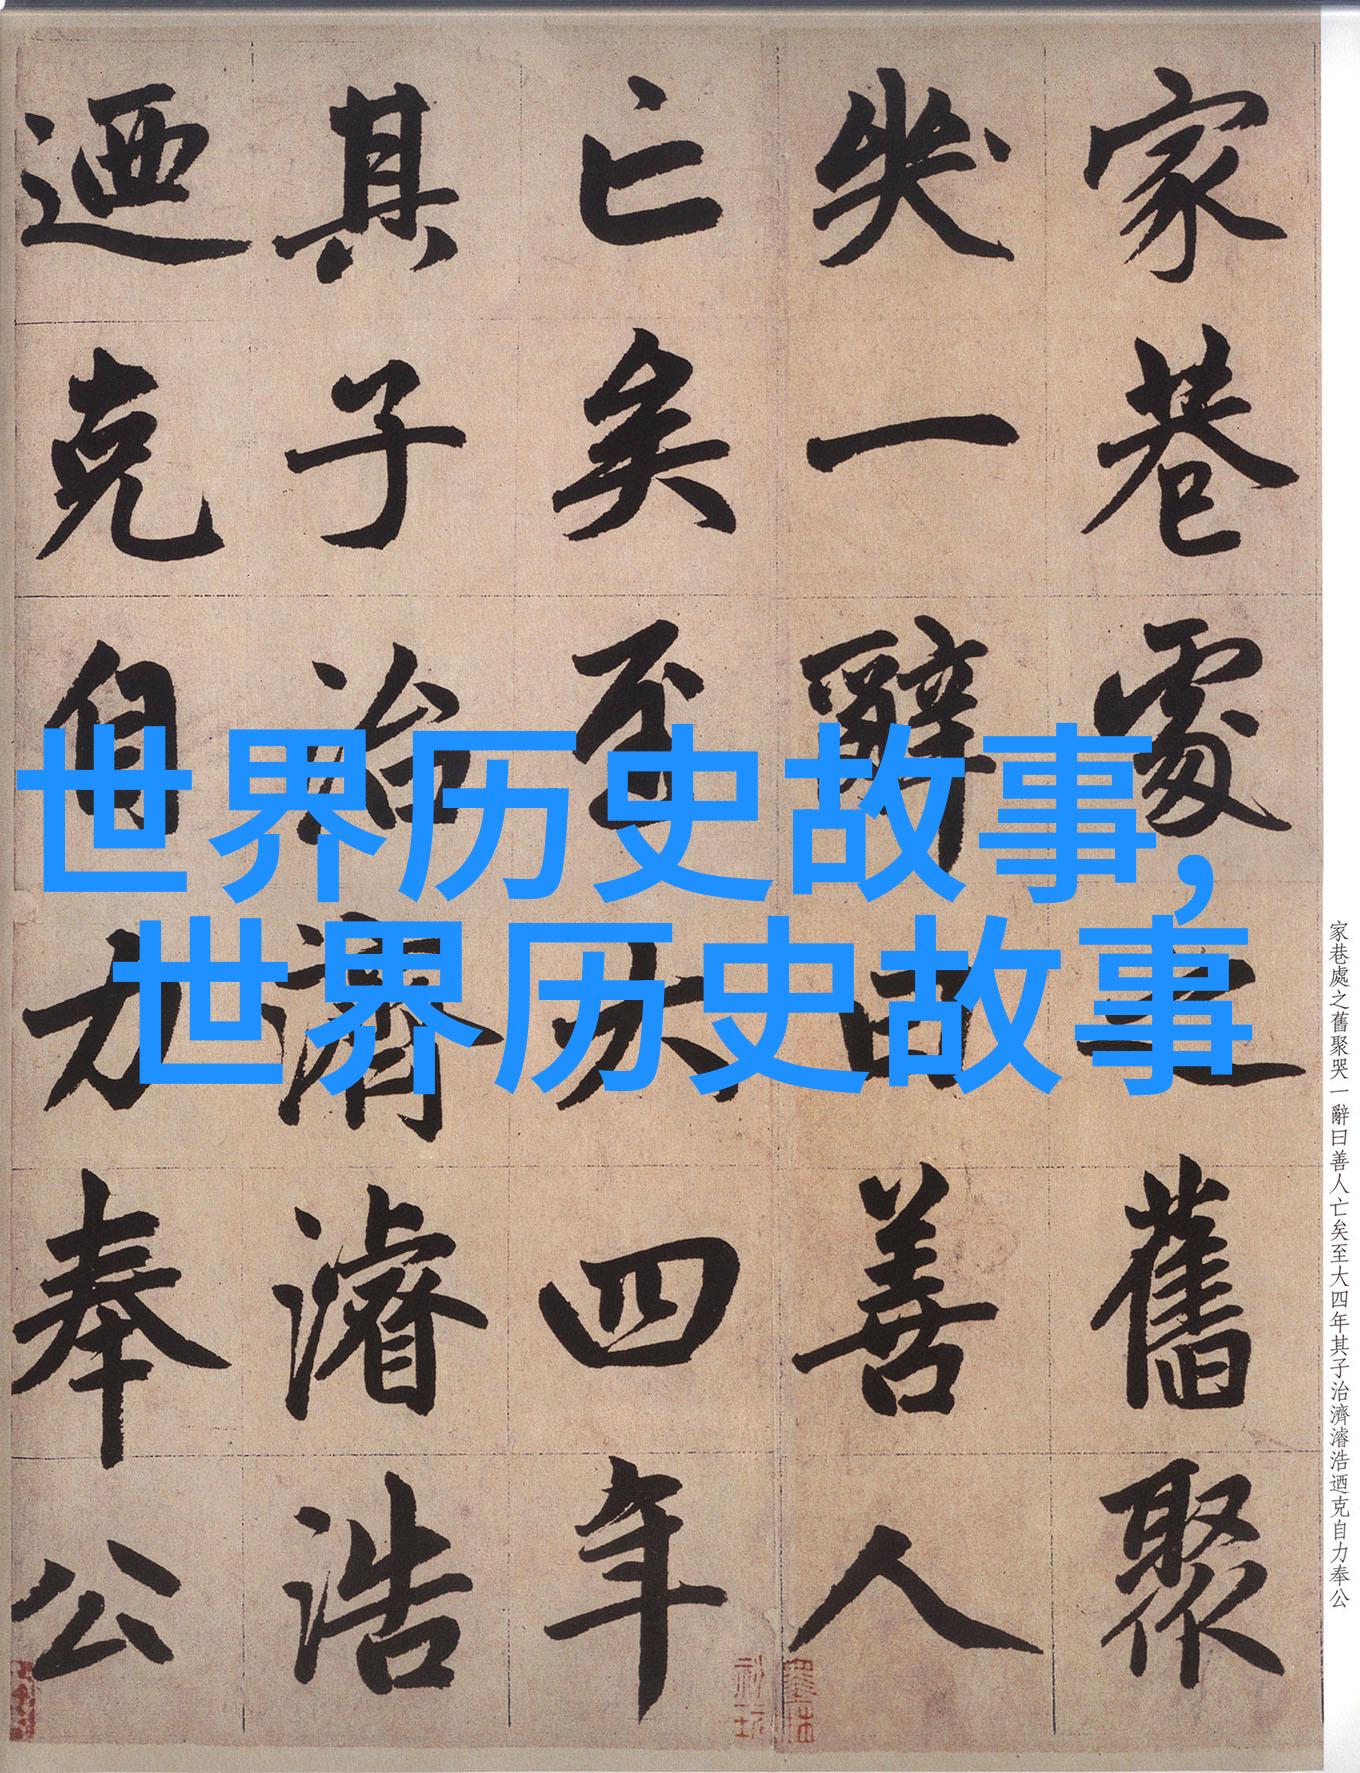 家巷處之舊聚
哭一辭曰善人
亡矣至大四年
其子治濟濬浩
迺克自力奉公
世界历史故事,
世界历史故事
家巷處之舊聚哭一辭曰善人亡矣至大四年其子治濟濬浩迺克自力奉公